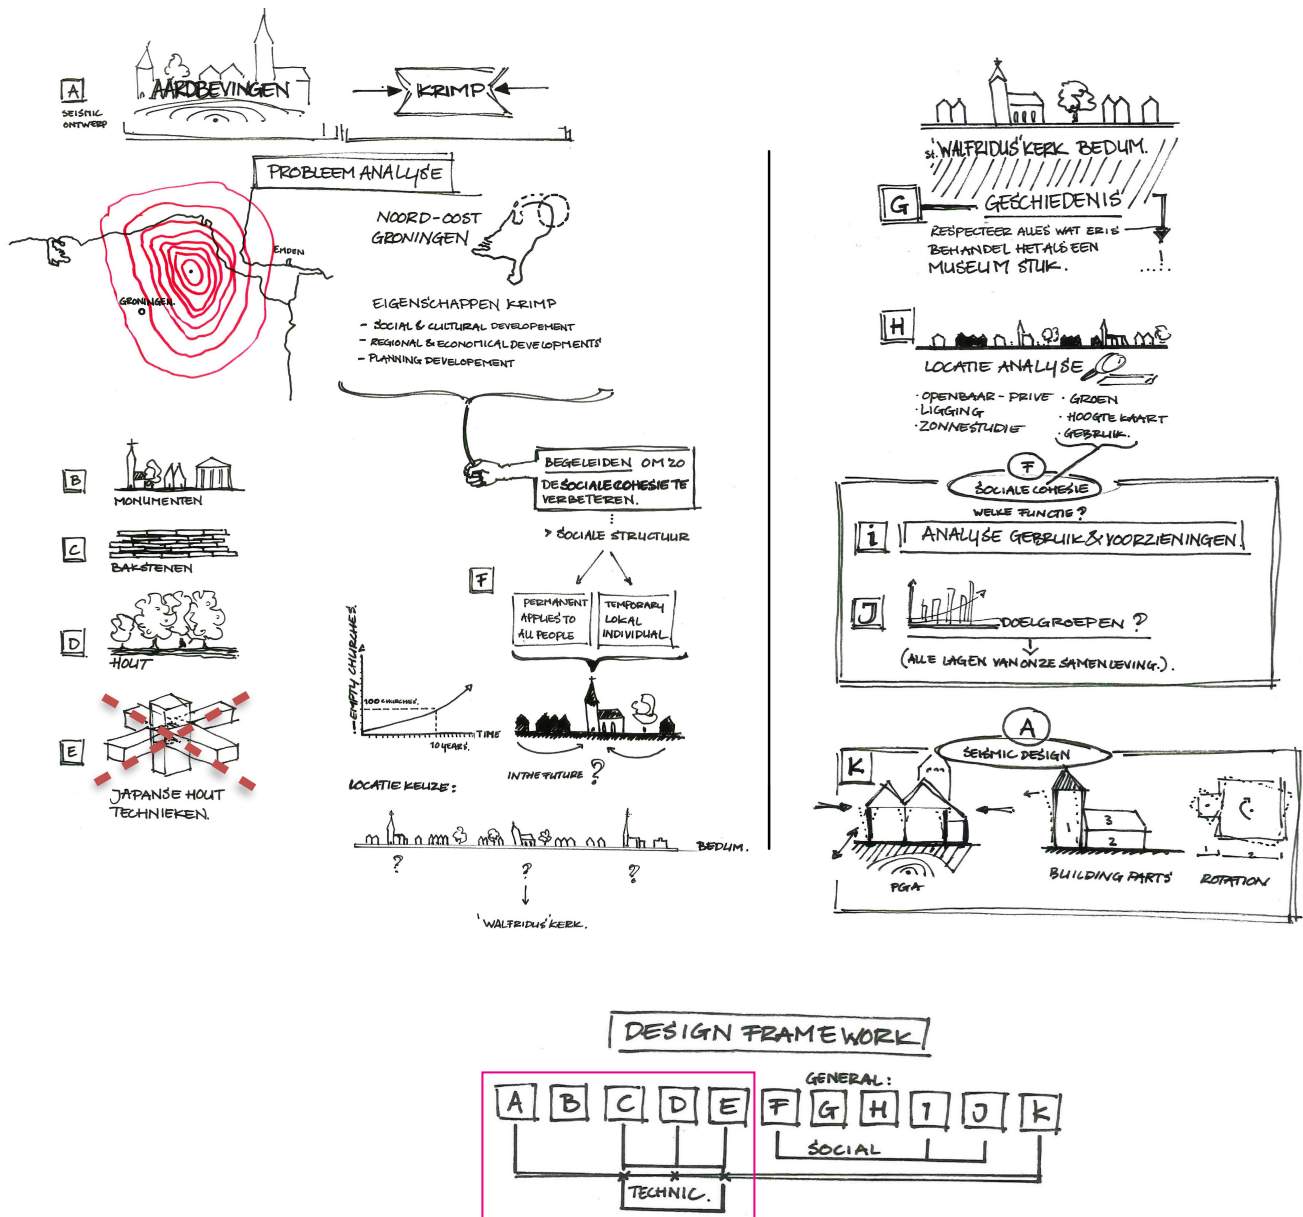 A
SEISMIC
ONTWERP
AARDBEVINGEN
KRIMP
PROBLEEM ANALYSE
EMDEN
GRONINGEN.
NOORD-OOST
GRONINGEN
EIGENSCHAPPEN KRIMP
- SOCIAL & CULTURAL DEVELOPEMENT
- REGIONAL & ECONOMICAL DEVELOPMENTS
- PLANNING DEVELOPEMENT
B
MONUMENTEN
C
BAKSTENEN
D
HOUT
E
JAPANSE HOUT
TECHNIEKEN.
BEGELEIDEN OM ZO
DE SOCIALE COHESIE TE
VERBETEREN.
> SOCIALE STRUCTUUR
F
PERMANENT
APPLIES TO
ALL PEOPLE
TEMPORARY
LOKAL
INDIVIDUAL
EMPTY CHURCHES.
100 CHURCHES.
TIME
10 YEARS.
IN THE FUTURE ?
LOCATIE KEUZE:
BEDUM.
? ? ?
'WALFRIDUS' KERK.
St. 'WALFRIDUS' KERK BEDUM.
G
GESCHIEDENIS
RESPECTEER ALLES WAT ER IS
BEHANDEL HET ALS EEN
MUSEUM STUK.
H
LOCATIE ANALYSE
· OPENBAAR - PRIVE
· LIGGING
· ZONNESTUDIE
· GROEN
· HOOGTE KAART
· GEBRUIK.
F
SOCIALE COHESIE
WELKE FUNCTIE?
i
ANALYSE GEBRUIK & VOORZIENINGEN
J
DOELGROEPEN ?
(ALLE LAGEN VAN ONZE SAMENLEVING.).
A
SEISMIC DESIGN
K
PGA
1
3
2
BUILDING PARTS
1 2
ROTATION
DESIGN FRAMEWORK
GENERAL:
A B C D E F G H I J K
SOCIAL
TECHNIC.